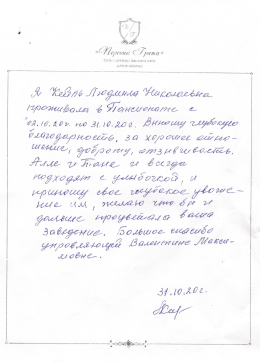 «Первый Грант»
Я Кейль Людмила Николаевна
проживала в Пансионате с
02.10.20г. по 31.10.20г. Выношу глубокую
благодарность, за хорошее отно-
шение, доброту, отзывчивость.
Алле и Тане и всегда
подходят с улыбочкой, и
приношу свое глубокое уваже-
ние им, желаю что бы и
дальше процветала ваша
Заведение. Большое спасибо
управляющей Валентине Макси-
мовне.
31.10.20г.